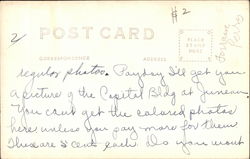 #2
2
POST CARD
CORRESPONDENCE
ADDRESS
PLACE
STAMP
HERE
regular photos. Payday I'll get you
a picture of the Capitol Bldg at Juneau.
You can't get the colored photos
here unless you pay more for them
These are 5 cents each. Do you want